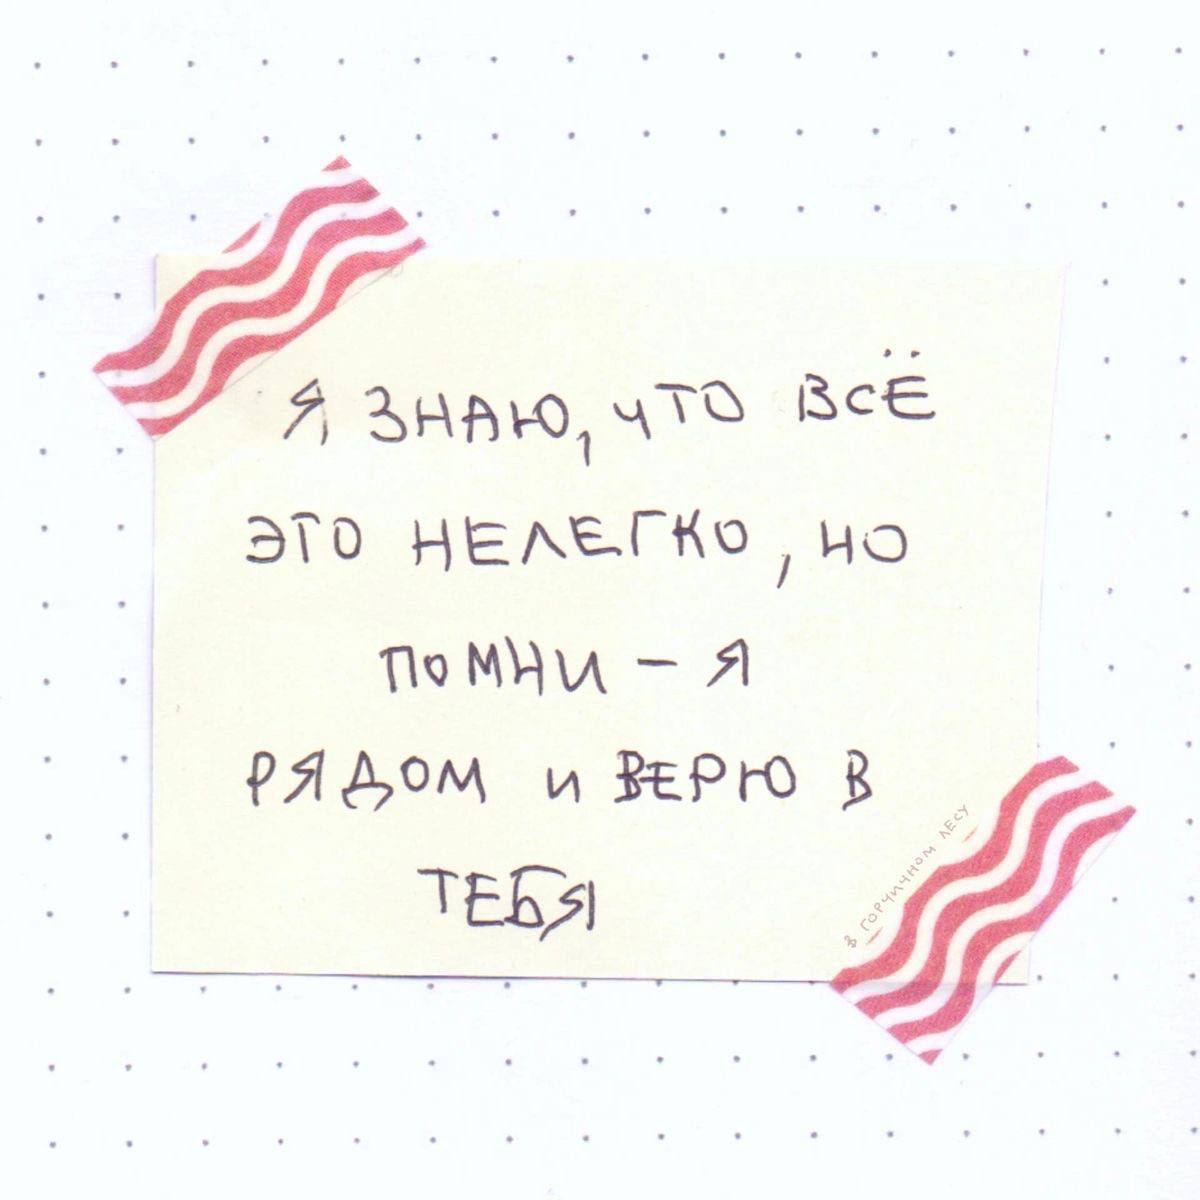 Я ЗНАЮ, ЧТО ВСЁ
ЭТО НЕЛЕГКО, НО
ПОМНИ – Я
РЯДОМ И ВЕРЮ В
ТЕБЯ
В ГОРЧИЧНОМ ЛЕСУ